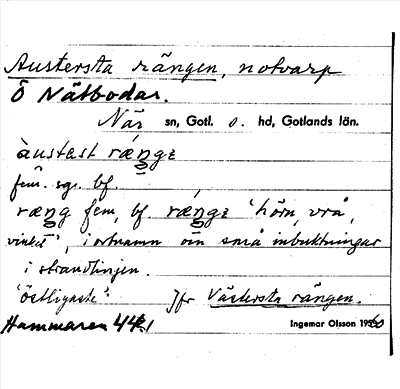 Austersta rängen, notvarp
Ö Nätbodar.
När sn, Gotl. o. hd, Gotlands län.
àustast ræŋgɛ
fem. sg. bf.
ræŋg fem, bf. ræŋgɛ 'hörn, vrå,
vinkel', i ortnamn om små inbuktningar
i strandlinjen.
'Östligaste'. Jfr Västersta rängen.
Hammaren 44 Ingemar Olsson 1960